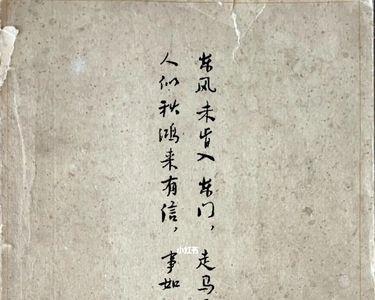 东风未肯入东门，走马
人似秋鸿来有信，事如
小红书